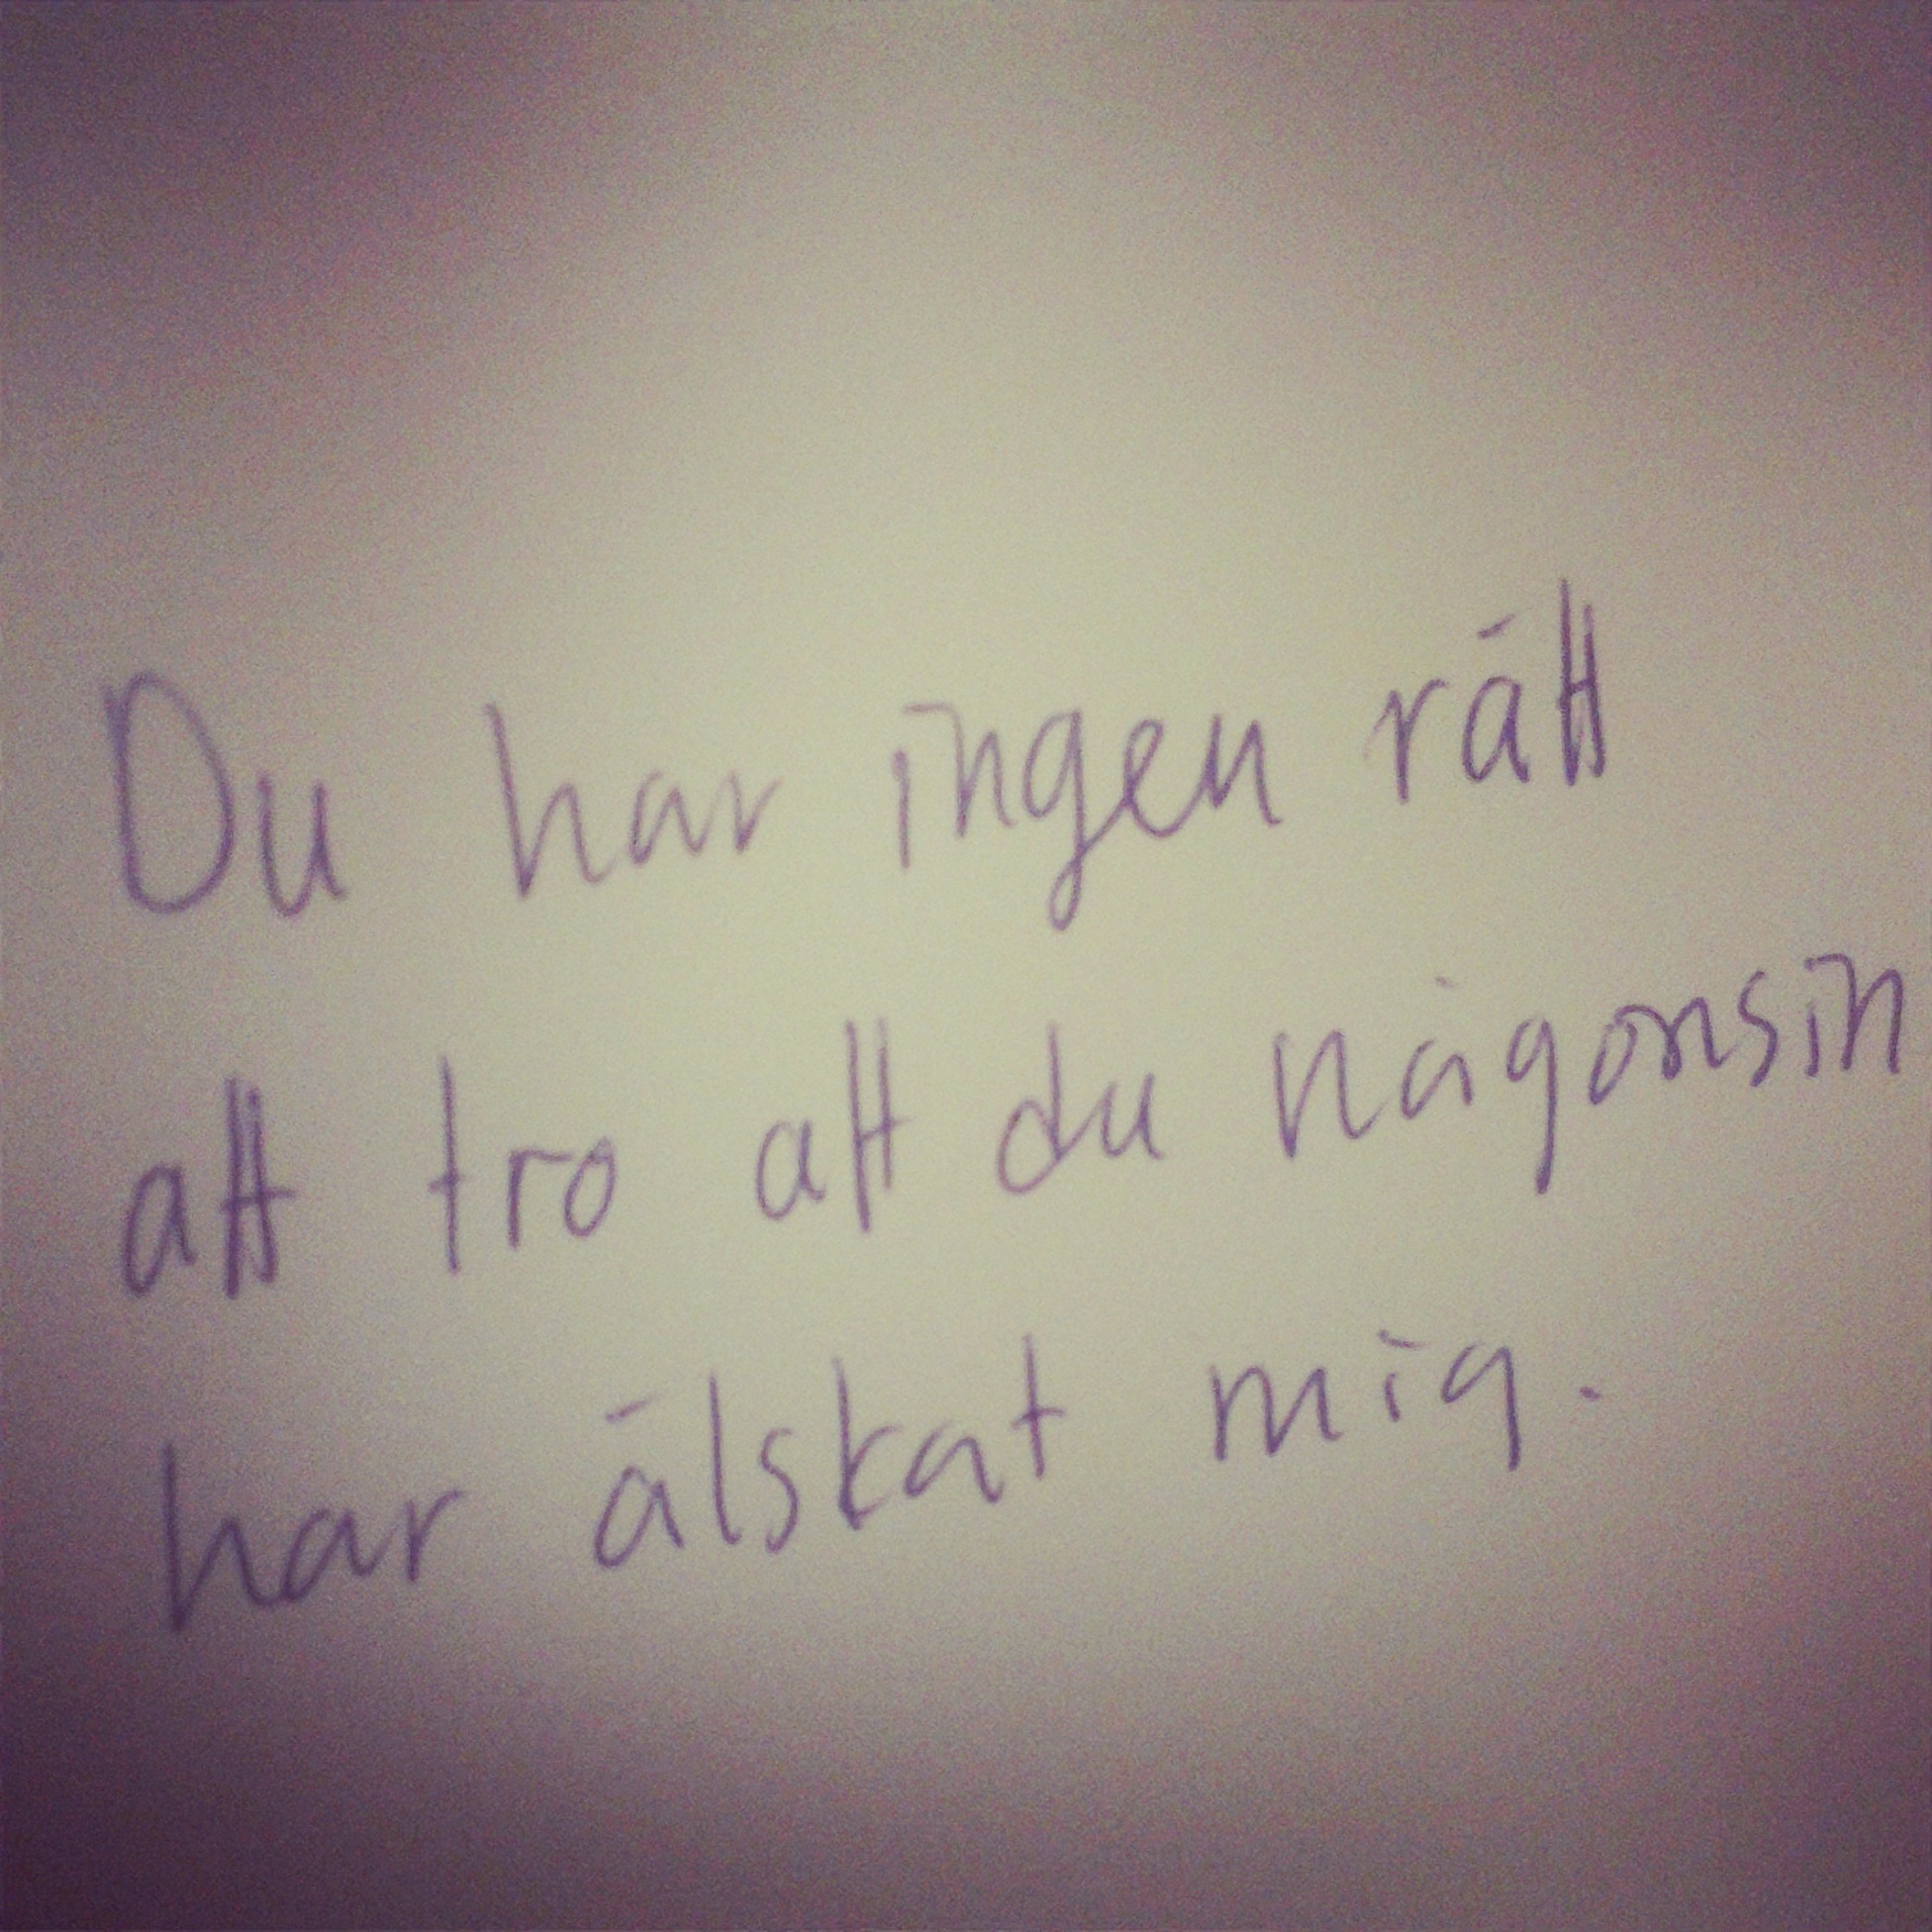 Du har ingen rätt
att tro att du någonsin
har älskat mig.